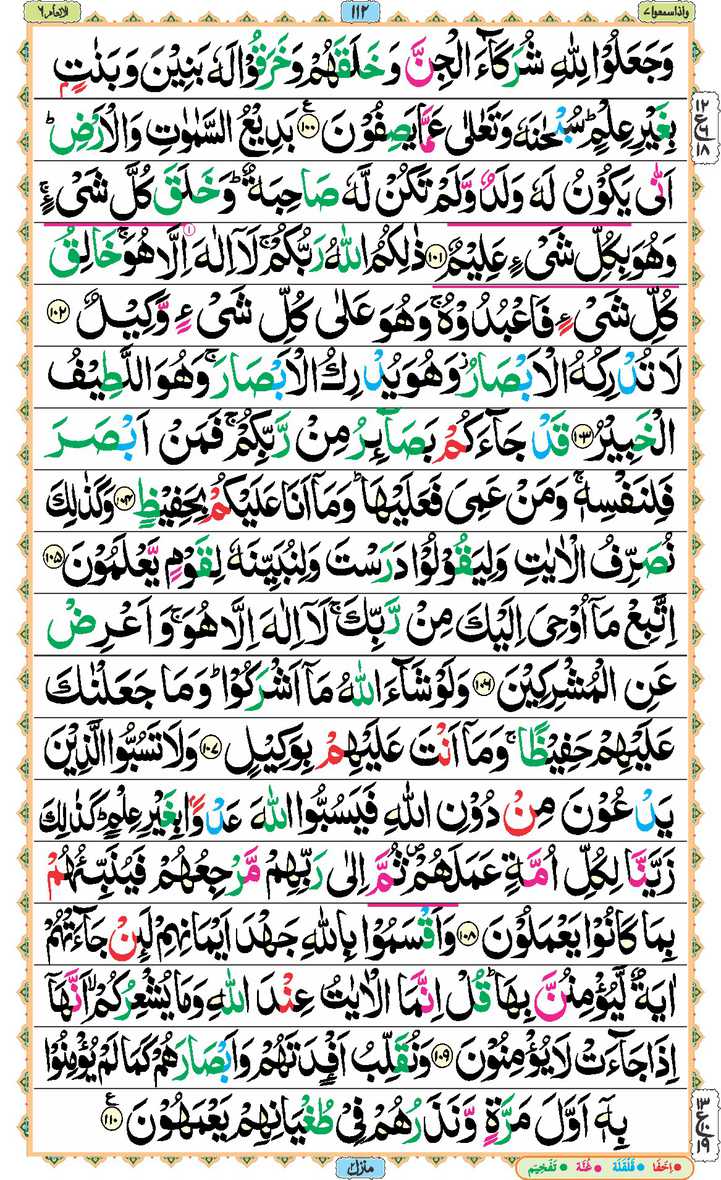 واذاسمعوا٧
١١٢
الانعام ٦
وَجَعَلُوْا لِلّٰهِ شُرَكَآءَ الْجِنَّ وَخَلَقَهُمْ وَخَرَقُوْا لَهٗ بَنِيْنَ وَبَنٰتٍۭ
بِغَيْرِ عِلْمٍ ؕ سُبْحٰنَهٗ وَتَعٰلٰى عَمَّا يَصِفُوْنَ ﴿۱۰۰﴾ بَدِيْعُ السَّمٰوٰتِ وَالْاَرْضِ ؕ
اَنّٰى يَكُوْنُ لَهٗ وَلَدٌ وَّلَمْ تَكُنْ لَّهٗ صَاحِبَةٌ ؕ وَخَلَقَ كُلَّ شَىْءٍ ۚ
وَهُوَ بِكُلِّ شَىْءٍ عَلِيْمٌ ﴿۱۰۱﴾ ذٰلِكُمُ اللّٰهُ رَبُّكُمْ ۚ لَاۤ اِلٰهَ اِلَّا هُوَ ۚ خَالِقُ
كُلِّ شَىْءٍ فَاعْبُدُوْهُ ۚ وَهُوَ عَلٰى كُلِّ شَىْءٍ وَّكِيْلٌ ﴿۱۰۲﴾
لَا تُدْرِكُهُ الْاَبْصَارُ وَهُوَ يُدْرِكُ الْاَبْصَارَ ۚ وَهُوَ اللَّطِيْفُ
الْخَبِيْرُ ﴿۱۰۳﴾ قَدْ جَآءَكُمْ بَصَآئِرُ مِنْ رَّبِّكُمْ ۚ فَمَنْ اَبْصَرَ
فَلِنَفْسِهٖ ۚ وَمَنْ عَمِىَ فَعَلَيْهَا ؕ وَمَاۤ اَنَا عَلَيْكُمْ بِحَفِيْظٍ ﴿۱۰۴﴾ وَكَذٰلِكَ
نُصَرِّفُ الْاٰيٰتِ وَلِيَقُوْلُوْا دَرَسْتَ وَلِنُبَيِّنَهٗ لِقَوْمٍ يَّعْلَمُوْنَ ﴿۱۰۵﴾
اِتَّبِعْ مَاۤ اُوْحِىَ اِلَيْكَ مِنْ رَّبِّكَ ۚ لَاۤ اِلٰهَ اِلَّا هُوَ ۚ وَاَعْرِضْ
عَنِ الْمُشْرِكِيْنَ ﴿۱۰۶﴾ وَلَوْ شَآءَ اللّٰهُ مَاۤ اَشْرَكُوْا ؕ وَمَا جَعَلْنٰكَ
عَلَيْهِمْ حَفِيْظًا ۚ وَمَاۤ اَنْتَ عَلَيْهِمْ بِوَكِيْلٍ ﴿۱۰۷﴾ وَلَا تَسُبُّوا الَّذِيْنَ
يَدْعُوْنَ مِنْ دُوْنِ اللّٰهِ فَيَسُبُّوا اللّٰهَ عَدْوًۢا بِغَيْرِ عِلْمٍ ؕ كَذٰلِكَ
زَيَّنَّا لِكُلِّ اُمَّةٍ عَمَلَهُمْ ۪ ثُمَّ اِلٰى رَبِّهِمْ مَّرْجِعُهُمْ فَيُنَبِّئُهُمْ
بِمَا كَانُوْا يَعْمَلُوْنَ ﴿۱۰۸﴾ وَاَقْسَمُوْا بِاللّٰهِ جَهْدَ اَيْمَانِهِمْ لَئِنْ جَآءَتْهُمْ
اٰيَةٌ لَّيُؤْمِنُنَّ بِهَا ؕ قُلْ اِنَّمَا الْاٰيٰتُ عِنْدَ اللّٰهِ وَمَا يُشْعِرُكُمْ ۙ اَنَّهَاۤ
اِذَا جَآءَتْ لَا يُؤْمِنُوْنَ ﴿۱۰۹﴾ وَنُقَلِّبُ اَفْـِٕدَتَهُمْ وَاَبْصَارَهُمْ كَمَا لَمْ يُؤْمِنُوْا
بِهٖۤ اَوَّلَ مَرَّةٍ وَّنَذَرُهُمْ فِىْ طُغْيَانِهِمْ يَعْمَهُوْنَ ﴿۱۱۰﴾
منزل ٢
اِخْفَا
قَلْقَلَة
غُنَّة
تَفْخِيْم